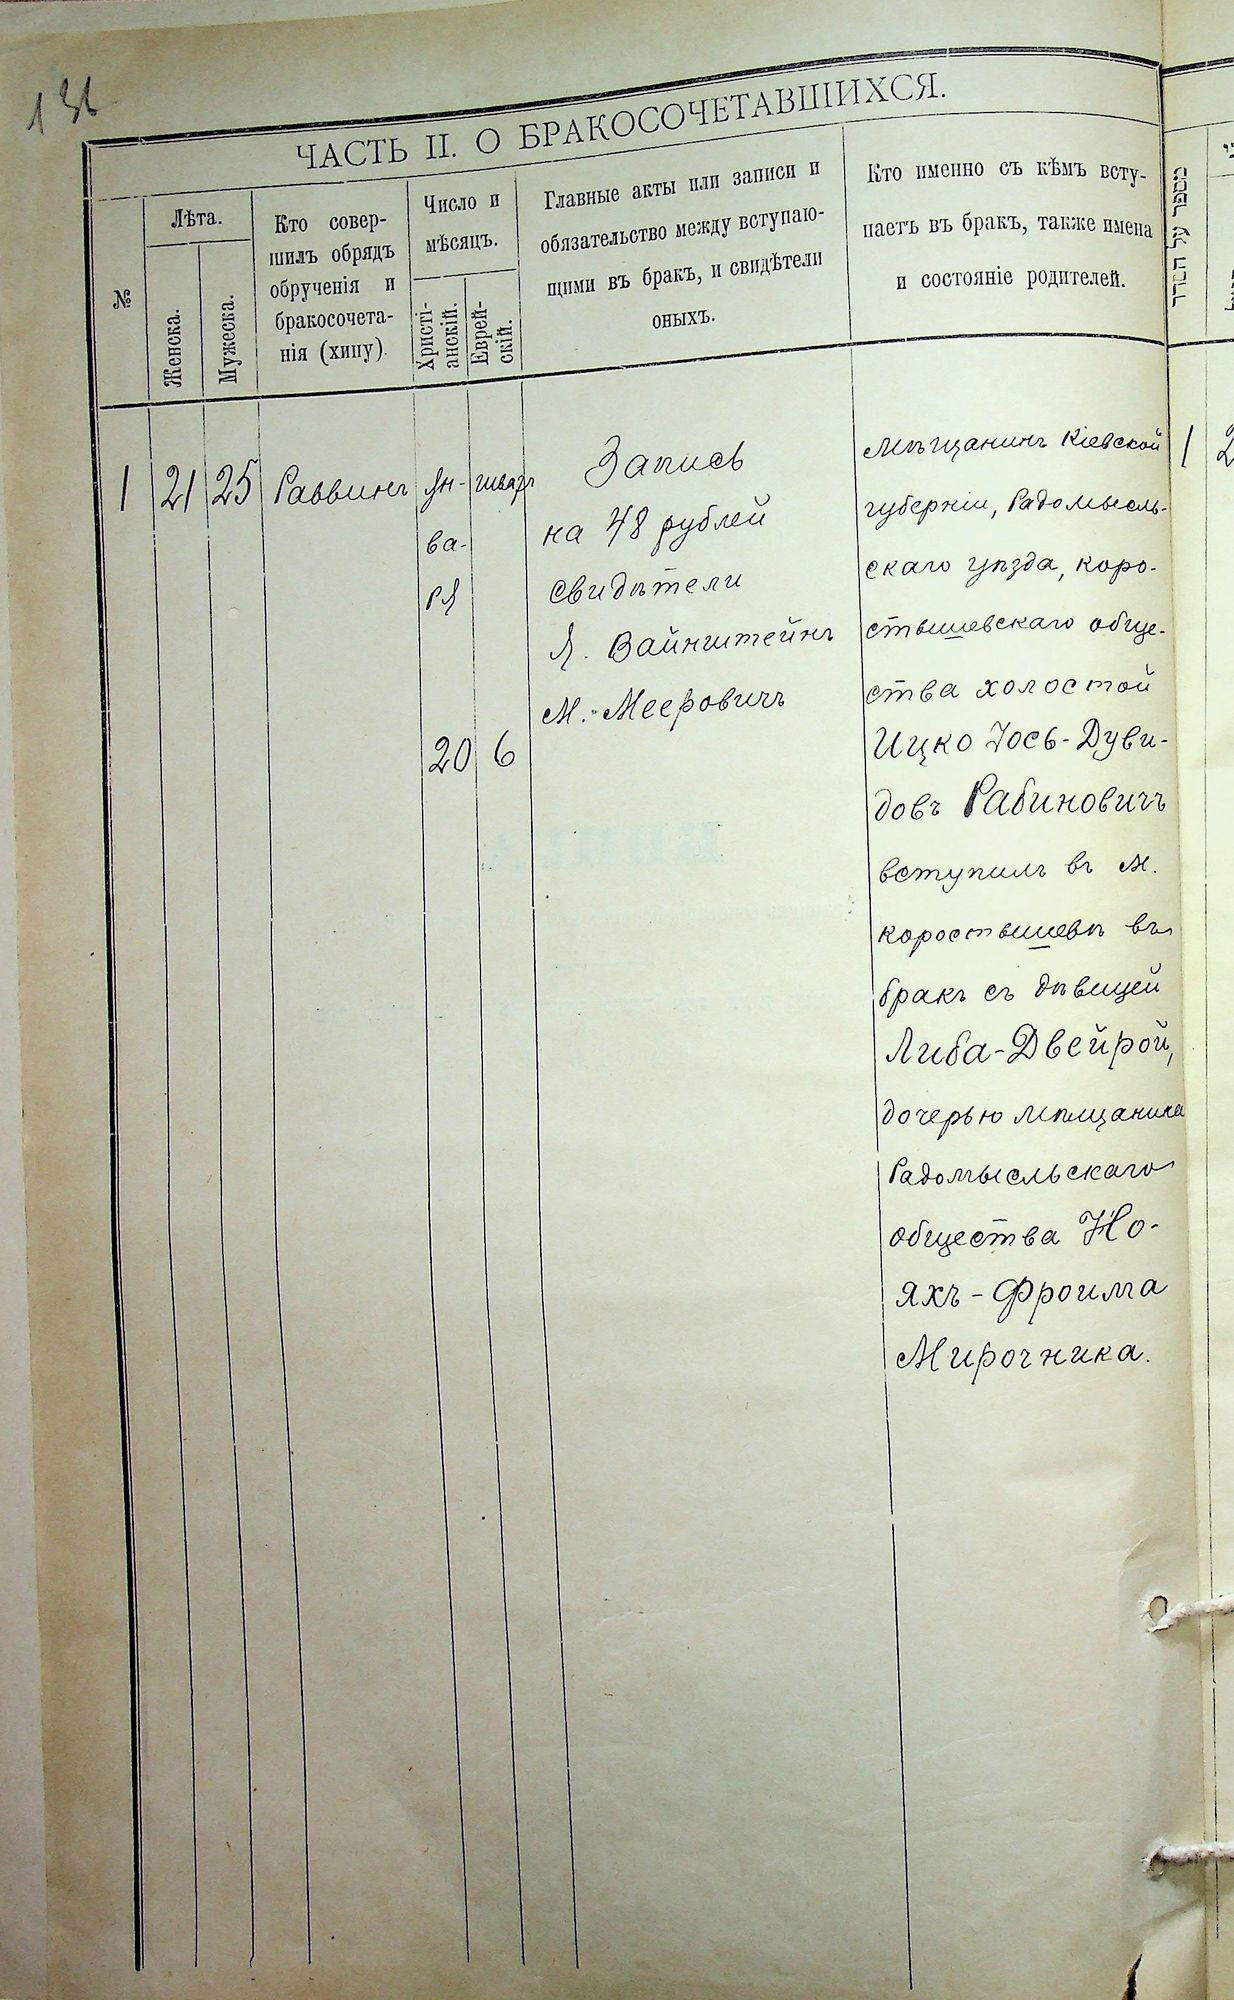 136
ЧАСТЬ II. О БРАКОСОЧЕТАВШИХСЯ.
№
Лѣта.
Женска.
Мужеска.
Кто совер-
шилъ обрядъ
обрученія и
бракосочета-
нія (хипу).
Число и
мѣсяцъ.
Христі-
анскій.
Еврей-
скій.
Главные акты или записи и
обязательство между вступаю-
щими въ бракъ, и свидѣтели
оныхъ.
Кто именно съ кѣмъ всту-
паетъ въ бракъ, также имена
и состояніе родителей.
1
21
25
Раввинъ
Ян-
ва-
ря
20
шваръ
6
Запись
на 48 рублей
свидѣтели
Я. Вайнштейнъ
М. Мееровичъ
Мѣщанинъ Кіевской
губерніи, Радомысль-
скаго уѣзда, коро-
стышевскаго обще-
ства холостой
Ицко Іось-Дуви-
довъ Рабиновичъ
вступилъ въ м.
коростышевѣ въ
бракъ съ дѣвицей
Либа-Двейрой,
дочерью мѣщанина
Радомысльскаго
общества Но-
яхъ-Фроима
Мирочника.
מספר על הסדר
1
2